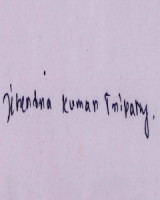 Jitendra Kumar Tripathy.